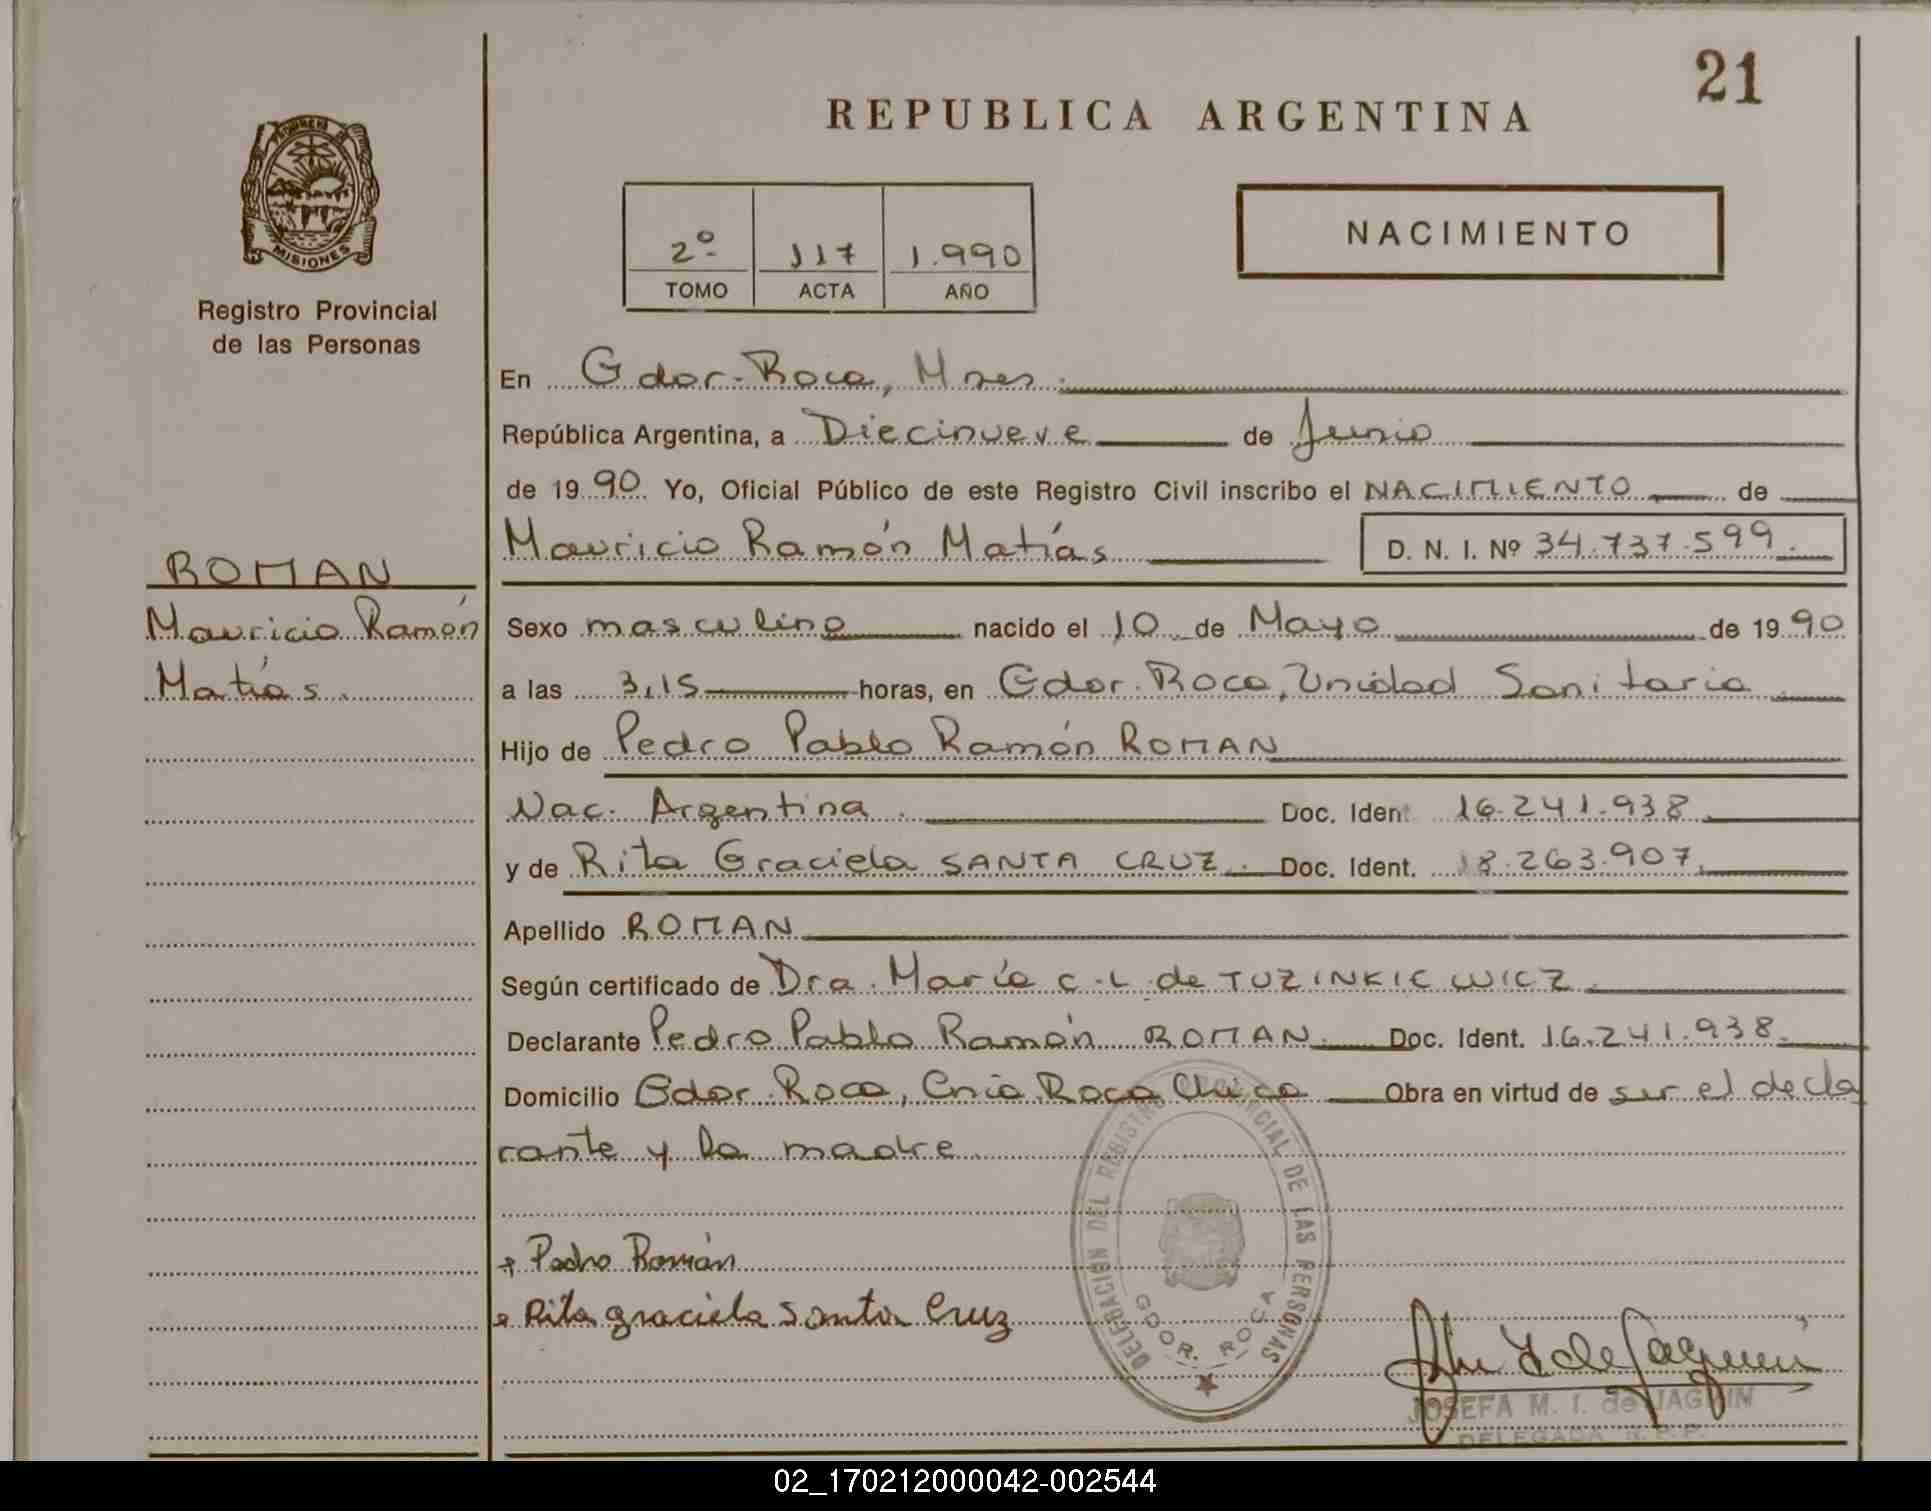 21
REPUBLICA ARGENTINA
MISIONES
Registro Provincial
de las Personas
2º 117 1.990
TOMO ACTA AÑO
NACIMIENTO
En Gdor. Roca, Mnes.
República Argentina, a Diecinueve de Junio
de 1990 Yo, Oficial Público de este Registro Civil inscribo el NACIMIENTO de
Mauricio Ramón Matías D. N. I. Nº 34.737.599.
ROMAN
Mauricio Ramón
Matías.
Sexo masculino nacido el 10 de Mayo de 1990
a las 3,15 horas, en Gdor. Roca, Unidad Sanitaria
Hijo de Pedro Pablo Ramón ROMAN
Nac. Argentina. Doc. Ident 16.241.938
y de Rita Graciela SANTA CRUZ. Doc. Ident. 18.263.907.
Apellido ROMAN
Según certificado de Dra. María C. L. de TUZINKIEWICZ.
Declarante Pedro Pablo Ramón ROMAN. Doc. Ident. 16.241.938.
Domicilio Gdor. Roca, Cnia Roca Chica Obra en virtud de ser el decla
rante y la madre
Pedro Román
Rita graciela Santa Cruz
DELEGACION DEL REGISTRO PROVINCIAL DE LAS PERSONAS
GDOR. ROCA
JOSEFA M. I. de JAGUIN
DELEGADA R.P.P.
02_170212000042-002544